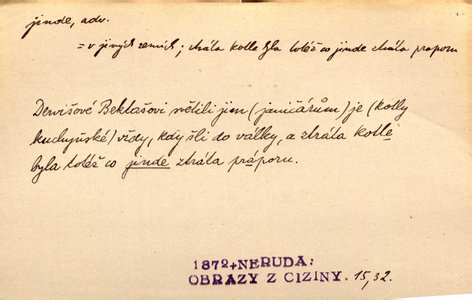 jinde, adv.
= v jiných zemích; ztráta kotle byla totéž co jinde ztráta praporu
Dervišové Bektašovi světili jim (janičárům) je (kotly
kuchyňské) vždy, kdy šli do války, a ztráta kotle
byla totéž co jinde ztráta práporu.
1872+NERUDA:
OBRAZY Z CIZINY. 15,32.